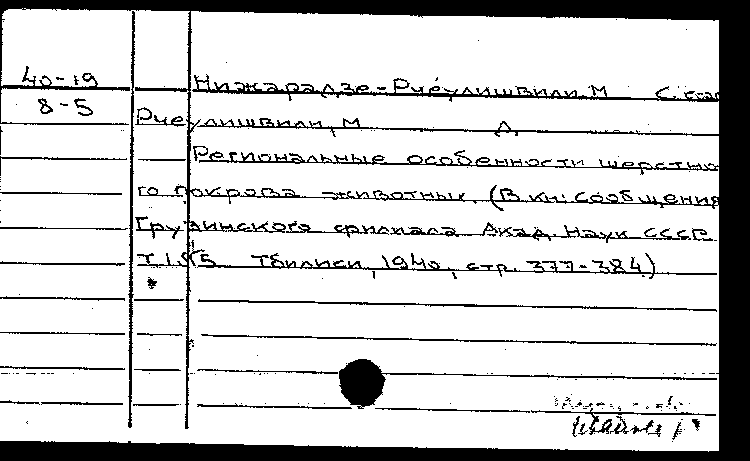 40-19
8-5
Нижарадзе-Рчеулишвили, М С. стат
Рчеулишвили, М Д.
Региональные особенности шерстно-
го покрова животных. (В кн: Сообщения
Грузинского филиала Акад. Наук СССР
т. I. №5 Тбилиси, 1940, стр. 377-384)